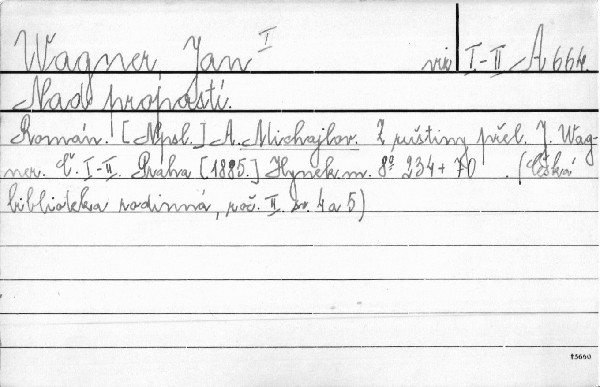 Wagner, Jan I viz I-II A 664.
Nad propastí.
Román. [Npsl.] A. Michajlov. Z ruštiny přel. J. Wag-
ner. Č. I-II. Praha [1885.] Hynek. m. 8° 234 + 70. (Česká
bibliotéka rodinná, roč. II. sv. 4 a 5)
15660